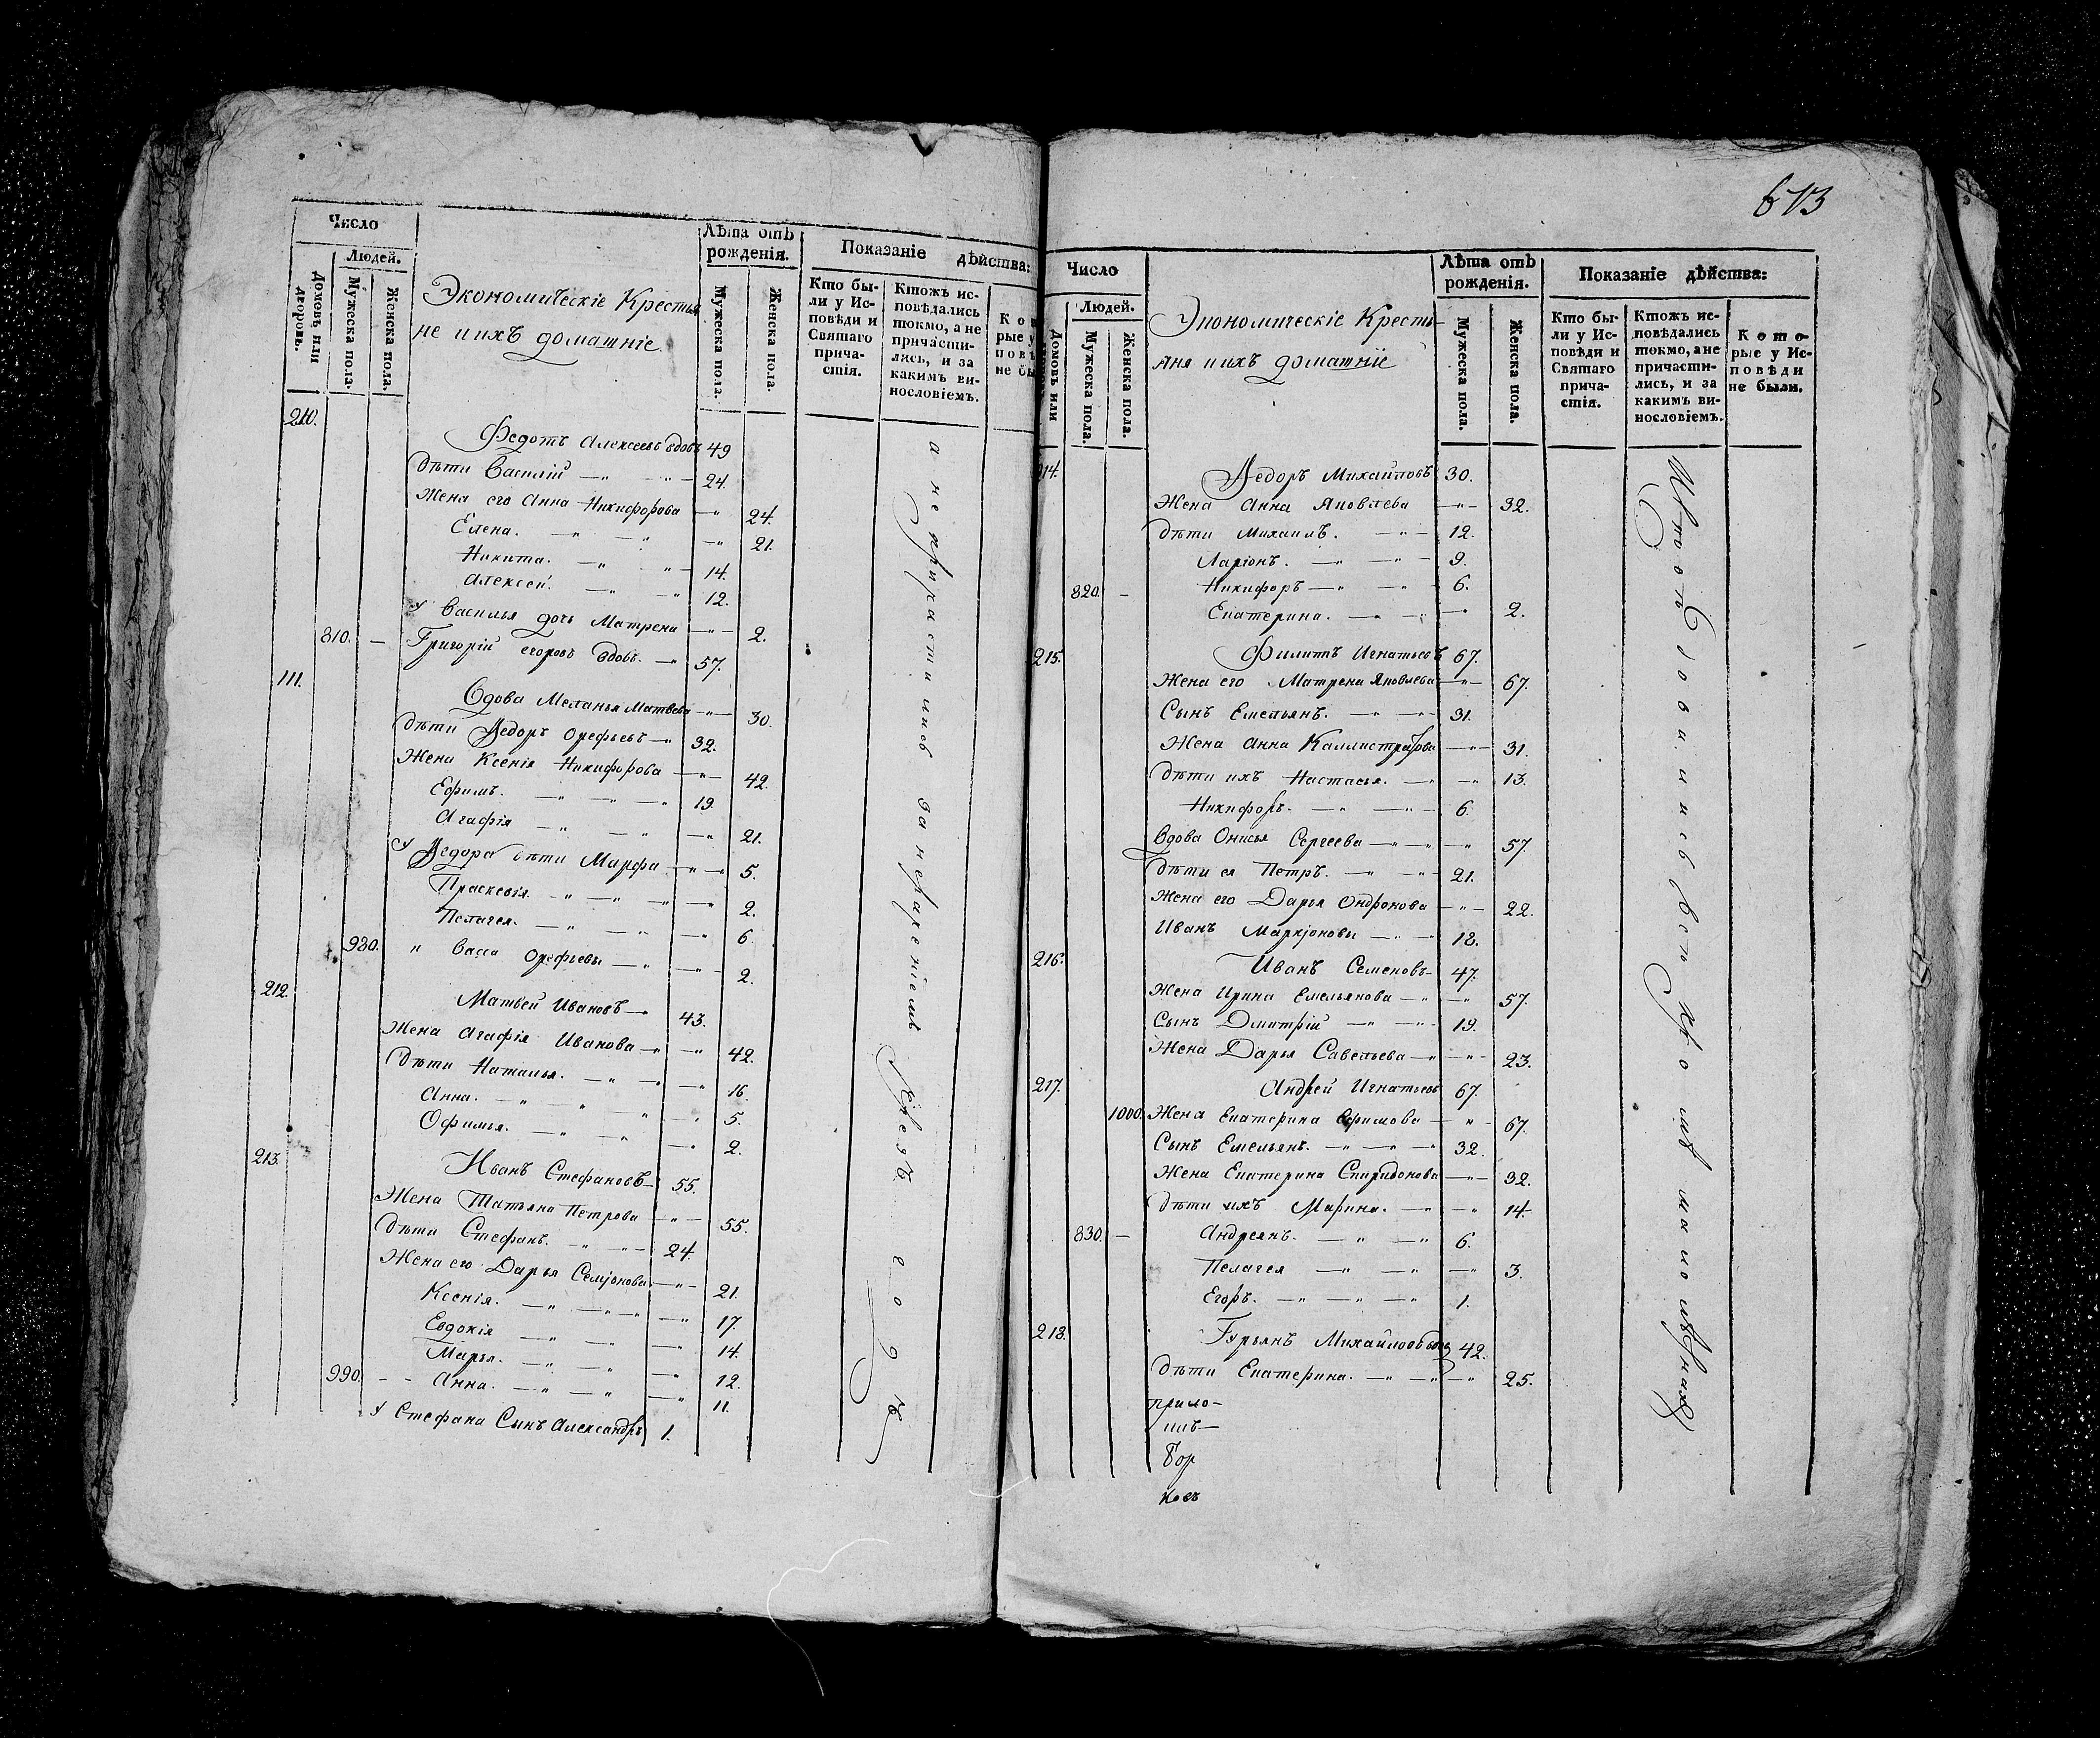 Число
Людей.
Домовъ или дворовъ.
Мужеска пола.
Женска пола.
Экономическіе Крестья
не и ихъ домашніе
Лѣта отъ рожденія.
Мужеска пола.
Женска пола.
Показаніе дѣйства:
Кто были у Исповѣди и Святаго причастія.
Ктожъ исповѣдались токмо, а не причастились, и за какимъ винословіемъ.
210.
Федотъ Алексеевъ вдовъ 49
Дѣти Василій —"— 24.
Жена его Анна Никифорова —"— 24.
Елена. —"— 21.
Никита. —"— 14.
Алексей. —"— 12.
У Василья дочь Матрена —"— 2.
810. — Григорій егоровъ вдовъ. — 57.
111.
Вдова Меланья Матвева —"— 30.
Дѣти Ѳедоръ Орефьевъ — 32.
Жена Ксенія Никифорова —"— 42.
Ефимъ. —"— 19.
Агафія —"— 21.
У Ѳедора дѣти Марфа —"— 5.
Праскевія —"— 2.
Пелагея. —"— 6.
980. " Васса Орефьевы —"— 2.
212.
Матвей Ивановъ — 43.
Жена Агафія Иванова —"— 42.
Дѣти Наталья. —"— 16.
Анна. —"— 5.
Офимья. —"— 2.
213.
Иванъ Стефановъ — 55.
Жена Татьяна Петрова —"— 55.
Дѣти Стефанъ. —"— 24.
Жена его Дарья Семіонова —"— 21.
Ксенія. —"— 17.
Евдокія —"— 14.
Марья. —"— 12.
990. - - Анна. —"— 11.
У Стефана Сынъ Александръ 1.
а не причастились за нераченіемъ
673
Число
Людей.
Домовъ или
Мужеска пола.
Женска пола.
Экономическіе Кресть-
яня и ихъ домашніе
Лѣта отъ рожденія.
Мужеска пола.
Женска пола.
Показаніе дѣйства:
Кто были у Исповѣди и Святаго причастія.
Ктожъ исповѣдались токмо, ане причастились, и за какимъ винословіемъ.
Которые у Исповѣди не были.
14.
Ѳедоръ Михайловъ 30.
Жена Анна Яковлева —"— 32.
Дѣти Михаилъ. —"— 12.
Ларіонъ. —"— 9.
820. — Никифоръ —"— 6.
Екатерина. —"— 2.
215.
Филипъ Игнатьевъ 67.
Жена его Матрена Яковлева —"— 67.
Сынъ Емельянъ. —"— 31.
Жена Анна Каллистратова —"— 31.
Дѣти ихъ Настасья. —"— 13.
Никифоръ. —"— 6.
Вдова Онисья Сергеева —"— 57.
Дѣти ея Петръ. —"— 21.
Жена его Дарья Ондронова —"— 22.
Иванъ Маркіоновы —"— 18.
216.
Иванъ Семеновъ 47.
Жена Ирина Емельянова —"— 57.
Сынъ Дмитрій —"— 19.
Жена Дарья Савельева —"— 23.
217.
Андрей Игнатьевъ 67.
1000. Жена Екатерина Ефимова —"— 67.
Сынъ Емельянъ. —"— 32.
Жена Екатерина Спиридонова —"— 32.
Дѣти ихъ Марина. —"— 14.
830. — Андреянъ. —"— 6.
Пелагея —"— 3.
Егоръ. —"— 1.
218.
Гурьянъ Михайлов 42.
Дѣти Екатерина. —"— 25.